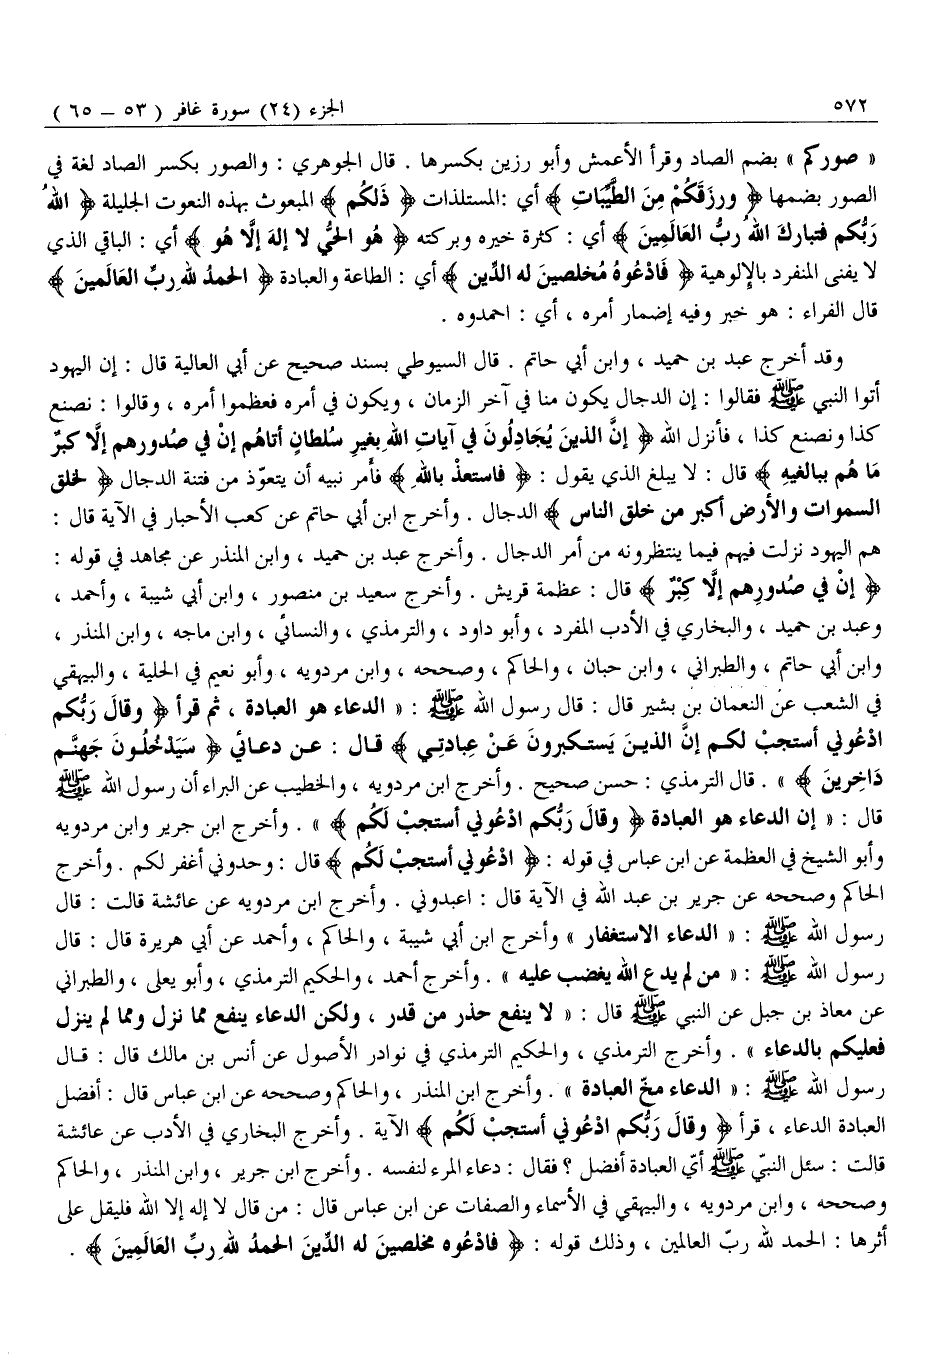 ٥٧٢ الجزء (٢٤) سورة غافر ( ٥٣ – ٦٥ )
« صوركم » بضم الصاد وقرأ الأعمش وأبو رزين بكسرها . قال الجوهري : والصور بكسر الصاد لغة في
الصور بضمها ﴿ ورزَقَكُمْ مِنَ الطَّيِّبَاتِ ﴾ أي :المستلذات ﴿ ذَلكُم ﴾ المبعوث بهذه النعوت الجليلة ﴿ اللهُ
رَبُّكم فتبارك اللهُ ربُّ العَالَمِينَ ﴾ أي : كثرة خيره وبركته ﴿ هُو الحَيُّ لا إلهَ إلَّا هُو ﴾ أي : الباقي الذي
لا يفنى المنفرد بالإلوهية ﴿ فَادْعُوهُ مُخلصينَ له الدِّين ﴾ أي : الطاعة والعبادة ﴿ الحمدُ للهِ ربِّ العَالَمينَ ﴾
قال الفراء : هو خبر وفيه إضمار أمره ، أي : احمدوه .
وقد أخرج عبد بن حميد ، وابن أبي حاتم . قال السيوطي بسند صحيح عن أبي العالية قال : إن اليهود
أتوا النبي ﷺ فقالوا : إن الدجال يكون منا في آخر الزمان ، ويكون في أمره فعظموا أمره ، وقالوا : نصنع
كذا ونصنع كذا ، فأنزل الله ﴿ إنَّ الذينَ يُجَادِلُونَ في آياتِ اللهِ بِغيرِ سُلطانٍ أتاهُم إنْ في صُدورهم إلَّا كبرٌ
مَا هُم ببالغيهِ ﴾ قال : لا يبلغ الذي يقول : ﴿ فاستعذْ باللهِ ﴾ فأمر نبيه أن يتعوّذ من فتنة الدجال ﴿ لخلق
السموات والأرض أكبر من خلق الناس ﴾ الدجال . وأخرج ابن أبي حاتم عن كعب الأحبار في الآية قال :
هم اليهود نزلت فيهم فيما ينتظرونه من أمر الدجال . وأخرج عبد بن حميد ، وابن المنذر عن مجاهد في قوله :
﴿ إنْ في صُدورِهم إلَّا كِبْرٌ ﴾ قال : عظمة قريش . وأخرج سعيد بن منصور ، وابن أبي شيبة ، وأحمد ،
وعبد بن حميد ، والبخاري في الأدب المفرد ، وأبو داود ، والترمذي ، والنسائي ، وابن ماجه ، وابن المنذر ،
وابن أبي حاتم ، والطبراني ، وابن حبان ، والحاكم ، وصححه ، وابن مردويه ، وأبو نعيم في الحلية ، والبيهقي
في الشعب عن النعمان بن بشير قال : قال رسول الله ﷺ : « الدعاء هو العبادة ، ثم قرأ ﴿ وقالَ رَبُّكم
ادْعُوني أستجبْ لكم إنَّ الذينَ يَستكبرونَ عَنْ عِبادتِي ﴾ قال : عن دعائي ﴿ سَيَدْخُلُونَ جَهنَّم
دَاخِرينَ ﴾ » . قال الترمذي : حسن صحيح . وأخرج ابن مردويه ، والخطيب عن البراء أن رسول الله ﷺ
قال : « إن الدعاء هو العبادة ﴿ وقالَ رَبُّكم ادْعُوني أستجبْ لَكُم ﴾ » . وأخرج ابن جرير وابن مردويه
وأبو الشيخ في العظمة عن ابن عباس في قوله : ﴿ ادْعُوني أستجبْ لَكُم ﴾ قال : وحدوني أغفر لكم . وأخرج
الحاكم وصححه عن جرير بن عبد الله في الآية قال : اعبدوني . وأخرج ابن مردويه عن عائشة قالت : قال
رسول الله ﷺ : « الدعاء الاستغفار » وأخرج ابن أبي شيبة ، والحاكم ، وأحمد عن أبي هريرة قال : قال
رسول الله ﷺ : « من لم يدع الله يغضب عليه » . وأخرج أحمد ، والحكيم الترمذي ، وأبو يعلى ، والطبراني
عن معاذ بن جبل عن النبي ﷺ قال : « لا ينفع حذر من قدر ، ولكن الدعاء ينفع مما نزل ومما لم ينزل
فعليكم بالدعاء » . وأخرج الترمذي ، والحكيم الترمذي في نوادر الأصول عن أنس بن مالك قال : قال
رسول الله ﷺ : « الدعاء مخّ العبادة » . وأخرج ابن المنذر ، والحاكم وصححه عن ابن عباس قال : أفضل
العبادة الدعاء ، قرأ ﴿ وقالَ رَبُّكم ادْعُوني أستجبْ لَكُم ﴾ الآية . وأخرج البخاري في الأدب عن عائشة
قالت : سئل النبيّ ﷺ أيّ العبادة أفضل ؟ فقال : دعاء المرء لنفسه . وأخرج ابن جرير ، وابن المنذر ، والحاكم
وصححه ، وابن مردويه ، والبيهقي في الأسماء والصفات عن ابن عباس قال : من قال لا إله إلا الله فليقل على
أثرها : الحمد لله ربّ العالمين ، وذلك قوله : ﴿ فادْعُوه مخلصينَ له الدِّينَ الحمدُ للهِ ربِّ العَالَمِينَ ﴾ .